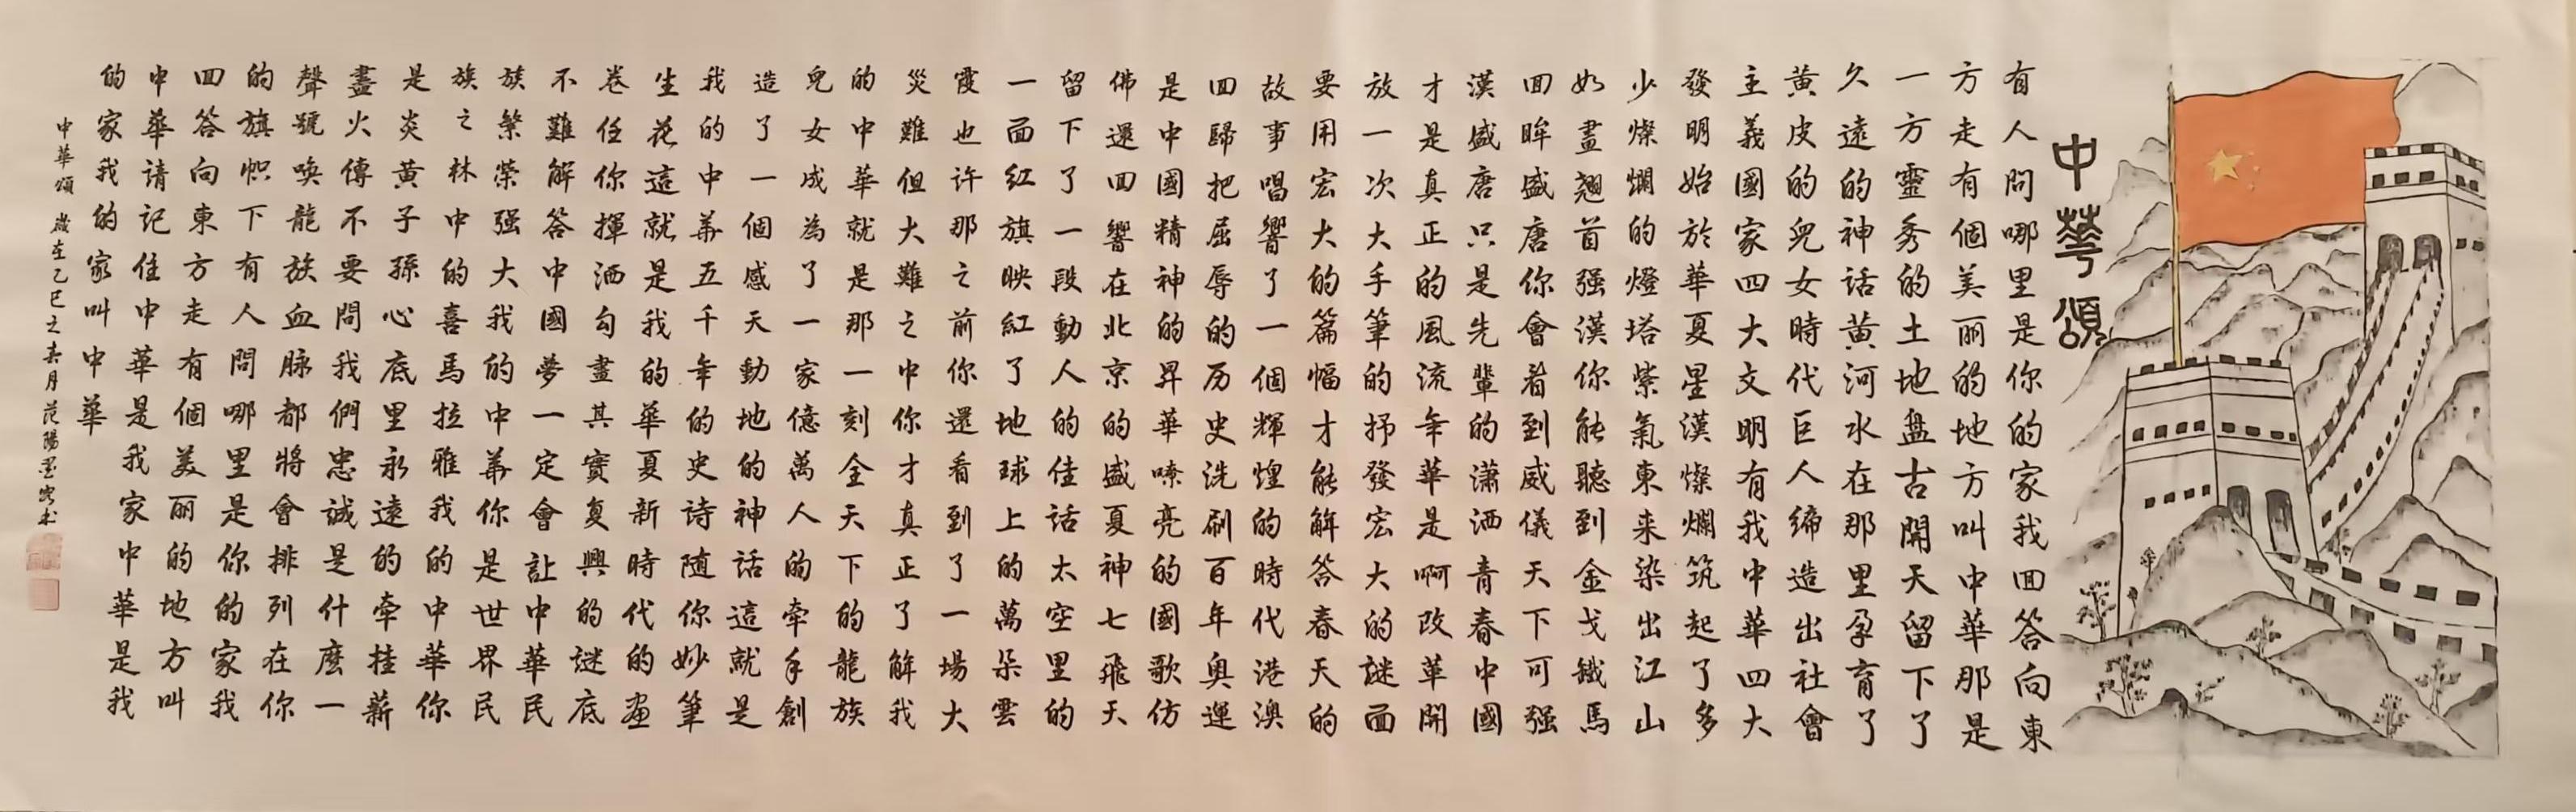 中華頌
有人問哪里是你的家我回答向東
方走有個美丽的地方叫中華那是
一方靈秀的土地盘古開天留下了
久遠的神話黄河水在那里孕育了
黄皮的兒女時代巨人缔造出社會
主義國家四大文明有我中華四大
發明始於華夏星漢燦爛筑起了多
少燦爛的燈塔紫氣東来染出江山
如畫翘首强漢你能聽到金戈鐵馬
回眸盛唐你會看到威儀天下可强
漢盛唐只是先輩的潇洒青春中國
才是真正的風流年華是啊改革開
放一次大手筆的抒發宏大的謎面
要用宏大的篇幅才能解答春天的
故事唱響了一個輝煌的時代港澳
回歸把屈辱的历史洗刷百年奥運
是中國精神的昇華嘹亮的國歌仿
佛還回響在北京的盛夏神七飛天
留下了一段動人的佳話太空里的
一面红旗映紅了地球上的萬朵雲
霞也许那之前你還看到了一場大
災難但大難之中你才真正了解我
的中華就是那一刻全天下的龍族
兒女成為了一家億萬人的牵手創
造了一個感天動地的神話這就是
我的中華五千年的史诗随你妙筆
生花這就是我的華夏新時代的画
卷任你揮洒勾畫其實复興的谜底
不難解答中國夢一定會让中華民
族繁榮强大我的中華你是世界民
族之林中的喜馬拉雅我的中華你
是炎黄子孫心底里永遠的牵挂薪
盡火傳不要問我們忠誠是什麽一
聲號唤龍族血脉都將會排列在你
的旗帜下有人問哪里是你的家我
回答向東方走有個美丽的地方叫
中華请記住中華是我家中華是我
的家我的家叫中華
中華頌 歲在乙巳之春月 范陽墨客书